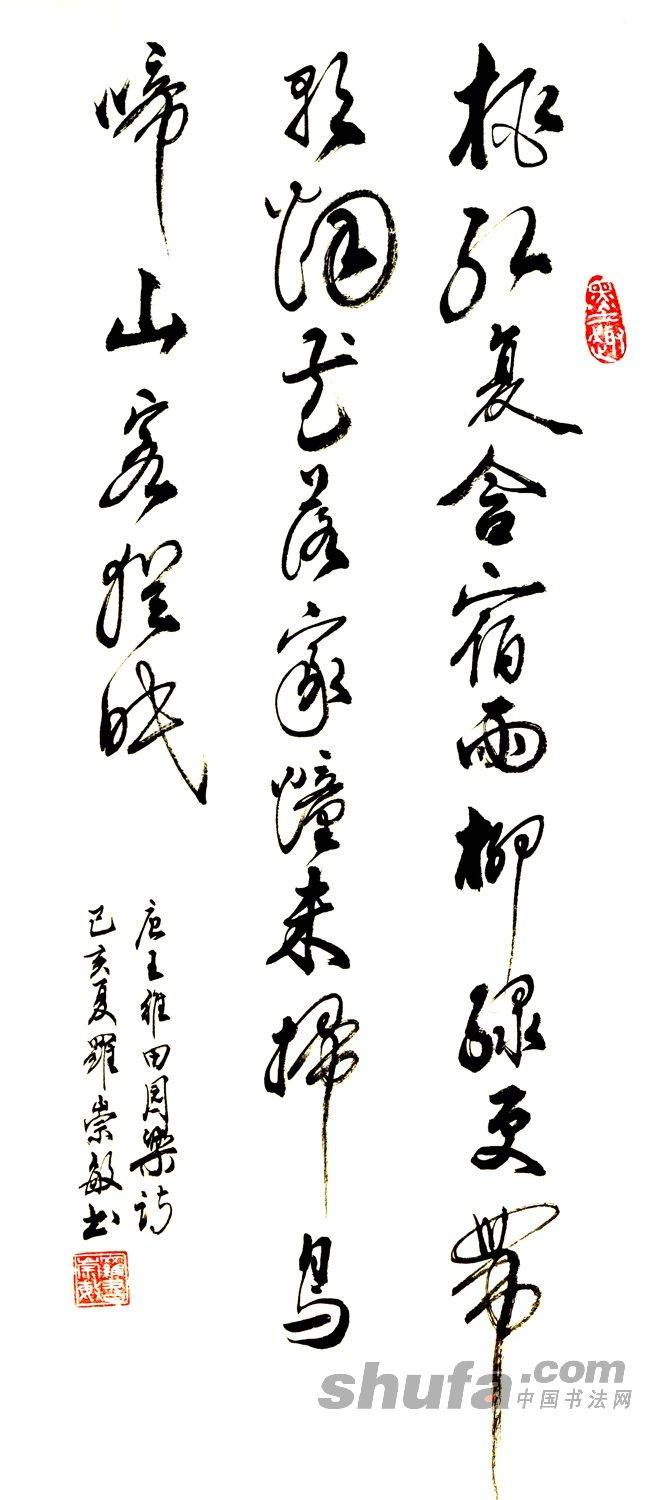 桃红复含宿雨柳绿更帶
朝烟花落家憧未掃鳥
啼山客猶眠
唐王維田园樂诗
己亥夏羅崇敏书
shufa.com
中国书法网